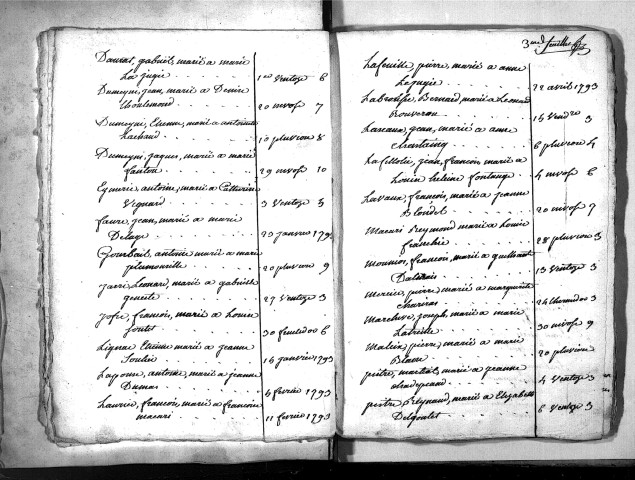 Daurat, gabriel, marié a marie
La jugie . . . . 1er Ventose 6
Dumeyni, jean, marié a Denise
. . . 20 nivose 7
Dumeyni, Etienne, marié a antoinette
Lachaud . . . . 10 pluviose 8
Dumeyni, jaques, marié a marie
fanton . . . . 29 nivose 10
Eymerie, antoine, marié a Catherine
Vegnard . . . . 3 Ventose 5
faure, jean, marié a marie
Delage . . . . 29 janvier 1793
Gourbail, antoine marié a marie
plumenville . . . . 20 pluviose 9
jarri Leonard, marié a gabrielle
geneste . . . . 27 Ventose 3
jofre, francois, marié a Louise
joutet . . . . 30 6
Lignac Etienne marié a jeanne
Soulier . . . . 16 janvier 1793
Lagorse, antoine, marié a jeanne
Dumas . . . . 6 fevrié 1793
Laurier, francois, marié a francoise
macari . . . . 11 fevrié 1793
3me feuillet
Lafeuille, pierre, marié a anne
Lejugie . . . . 22 avril 1793
Labrousse, Bernard, marié a Leonard
Rouveron . . . . 15 Vendre 3
jean, marié a anne
Chantainy . . . . 6 pluviose 4
jean, francois, marié a
Louise heleine fontange . . 4 nivose 6
Lavaux, francois, marié a jeanne
Blondel . . . . 20 nivose 7
Macari Reymond marié a Louise
franchie . . . . 28 pluviose 3
mounier, francois, marié a
. . . . 13 Ventose 3
Mercier, pierre, marié a marguerite
. . . . 24 thermidor 3
Marchive, joseph, marié a marie
Labrielle . . . . 30 nivose 9
Malin, pierre, marié a marie
Blaise . . . . 20 pluviose
peitre, martial, marié a jeanne
. . . . 4 Ventose 3
peitre, Reynaud, marié a Elizabeth
Delgoulet . . . . 6 Ventose 3